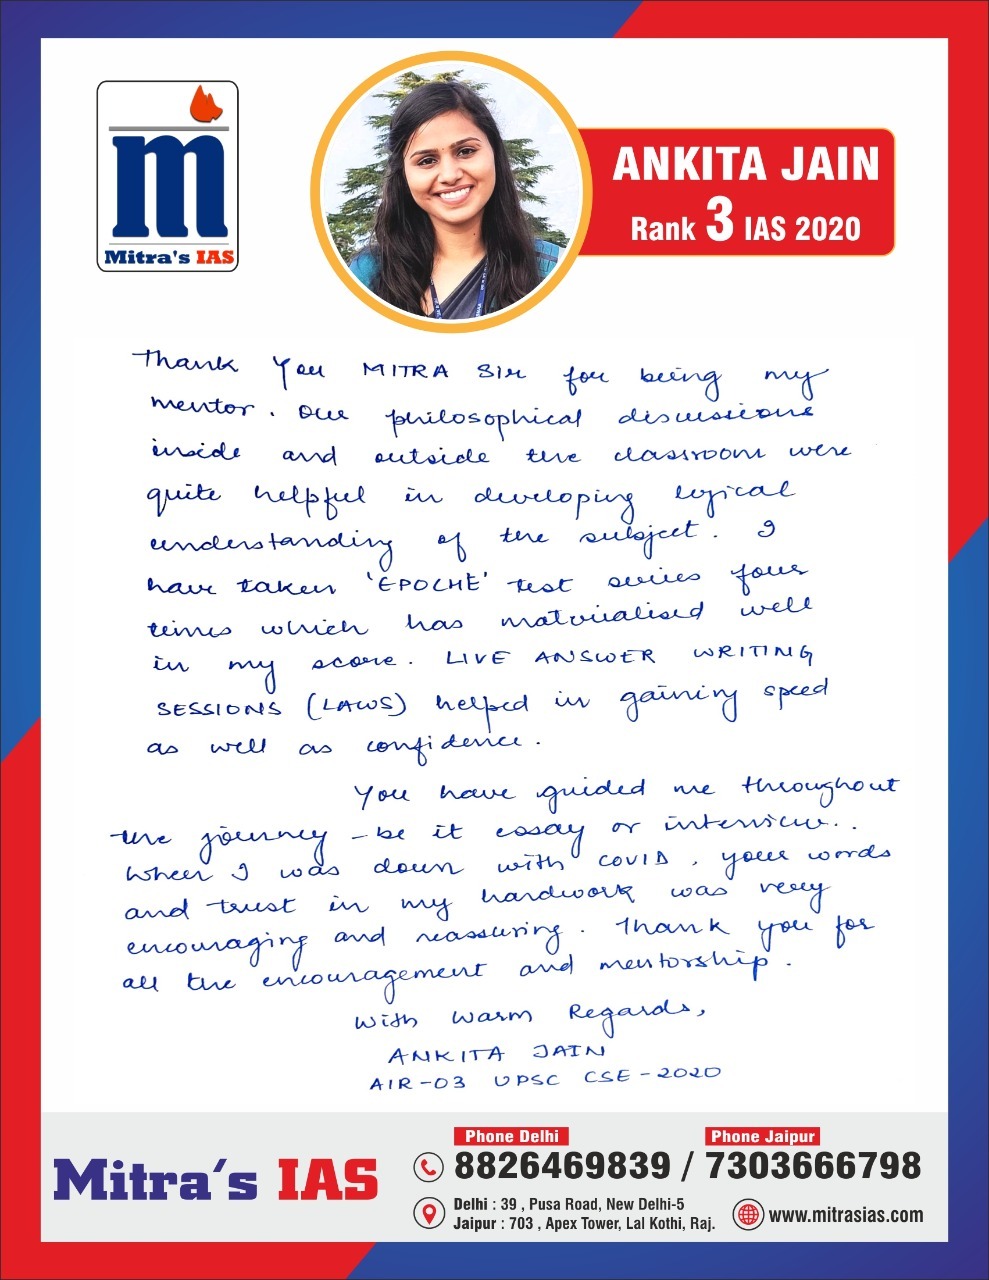 m
Mitra's IAS
ANKITA JAIN
Rank 3 IAS 2020
Thank You MITRA Sir for being my
mentor. Our philosophical discussions
inside and outside the classroom were
quite helpful in developing logical
understanding of the subject. I
have taken 'EPOCHE' test series four
times which has materialised well
in my score. LIVE ANSWER WRITING
SESSIONS (LAWS) helped in gaining speed
as well as confidence.
You have guided me throughout
the journey - be it essay or interview..
When I was down with COVID, your words
and trust in my hardwork was very
encouraging and reassuring. Thank you for
all the encouragement and mentorship.
With Warm Regards,
ANKITA JAIN
AIR-03 UPSC CSE-2020
Mitra's IAS
Phone Delhi Phone Jaipur
8826469839 / 7303666798
Delhi : 39 , Pusa Road, New Delhi-5
Jaipur : 703 , Apex Tower, Lal Kothi, Raj.
www.mitrasias.com